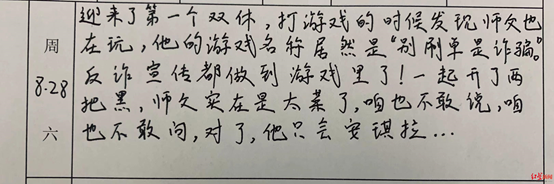 迎来了第一个双休，打游戏的时候发现师父也
周
在玩，他的游戏名字居然是"别刷单是诈骗"。
反诈宣传都做到游戏里了！一起开了两
8.28
把黑，师父实在是太菜了，咱也不敢说，咱
六
也不敢问，对了，他只会安琪拉...